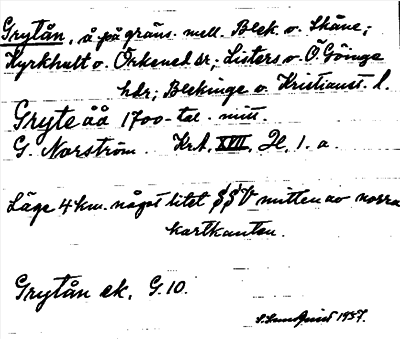 Grytån, å på gräns mell. Blek. o. Skåne;
Kyrkhult o. Örkened sr; Listers o. Ö. Göinge
hdr; Blekinge o. Kristianst. l.
Gryte åå 1700-tal. mitt.
G. Norström. Krt. XVIII, H, 1. a.
Läge 4 km. något litet SSV mitten av norra
kartkanten.
Grytån ek. G. 10.
S. Sundquist 1937.